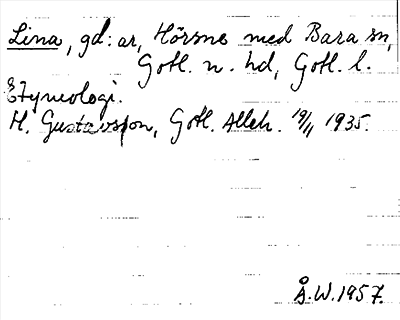 Lina, gd: ar, Hörsne med Bara sn,
Gotl. n. hd, Gotl. l.
Etymologi.
H. Gustavsson, Gotl. Alleh. 19/11 1935.
Å.W. 1957.